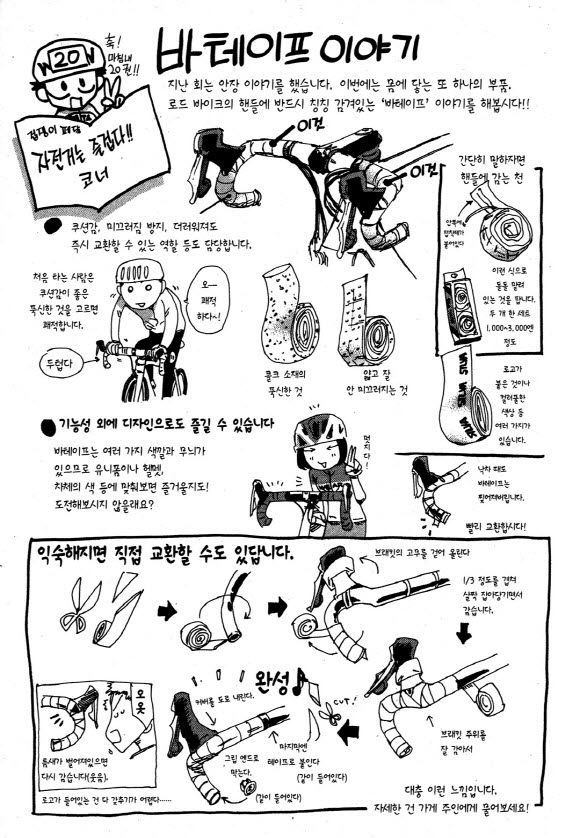 훗!
마침내
20권!!
20
바테이프 이야기
지난 회는 안장 이야기를 했습니다. 이번에는 몸에 닿는 또 하나의 부품,
로드 바이크의 핸들에 반드시 칭칭 감겨있는 '바테이프' 이야기를 해봅시다!!
자전거는 즐겁다!!
코너
이것
이것
간단히 말하자면
핸들에 감는 천
안쪽에
접착제가
붙어있다
이런 식으로
돌돌 말려
있는 것을 팝니다.
두 개 한 세트
1,000~3,000엔
정도
● 쿠션감, 미끄러짐 방지, 더러워져도
즉시 교환할 수 있는 역할 등도 담당합니다.
처음 타는 사람은
쿠션감이 좋은
푹신한 것을 고르면
쾌적합니다.
오—
쾌적
하다~!
두껍다
콜크 소재의
푹신한 것
얇고 잘
안 미끄러지는 것
로고가
붙은 것이나
컬러풀한
색상 등
여러 가지가
있습니다.
● 기능성 외에 디자인으로도 즐길 수 있습니다
바테이프는 여러 가지 색깔과 무늬가
있으므로 유니폼이나 헬멧,
차체의 색 등에 맞춰보면 즐거울지도!
도전해보시지 않을래요?
멋지다!
낙차 때도
바테이프는
찢어져버립니다.
빨리 교환합시다!
익숙해지면 직접 교환할 수도 있답니다.
브래킷의 고무를 걷어 올린다
1/3 정도를 겹쳐
살짝 잡아당기면서
감습니다.
브래킷 주위를
잘 감아서
CUT!
완성♪
커버를 도로 내린다.
마지막엔
테이프로 붙인다
(같이 들어있다)
그립 엔드로
막는다.
(같이 들어있다)
오옷
틈새가 벌어져있으면
다시 감습니다(웃음).
로고가 들어있는 건 다 갖추기가 어렵다......
대충 이런 느낌입니다.
자세한 건 가게 주인에게 물어보세요!